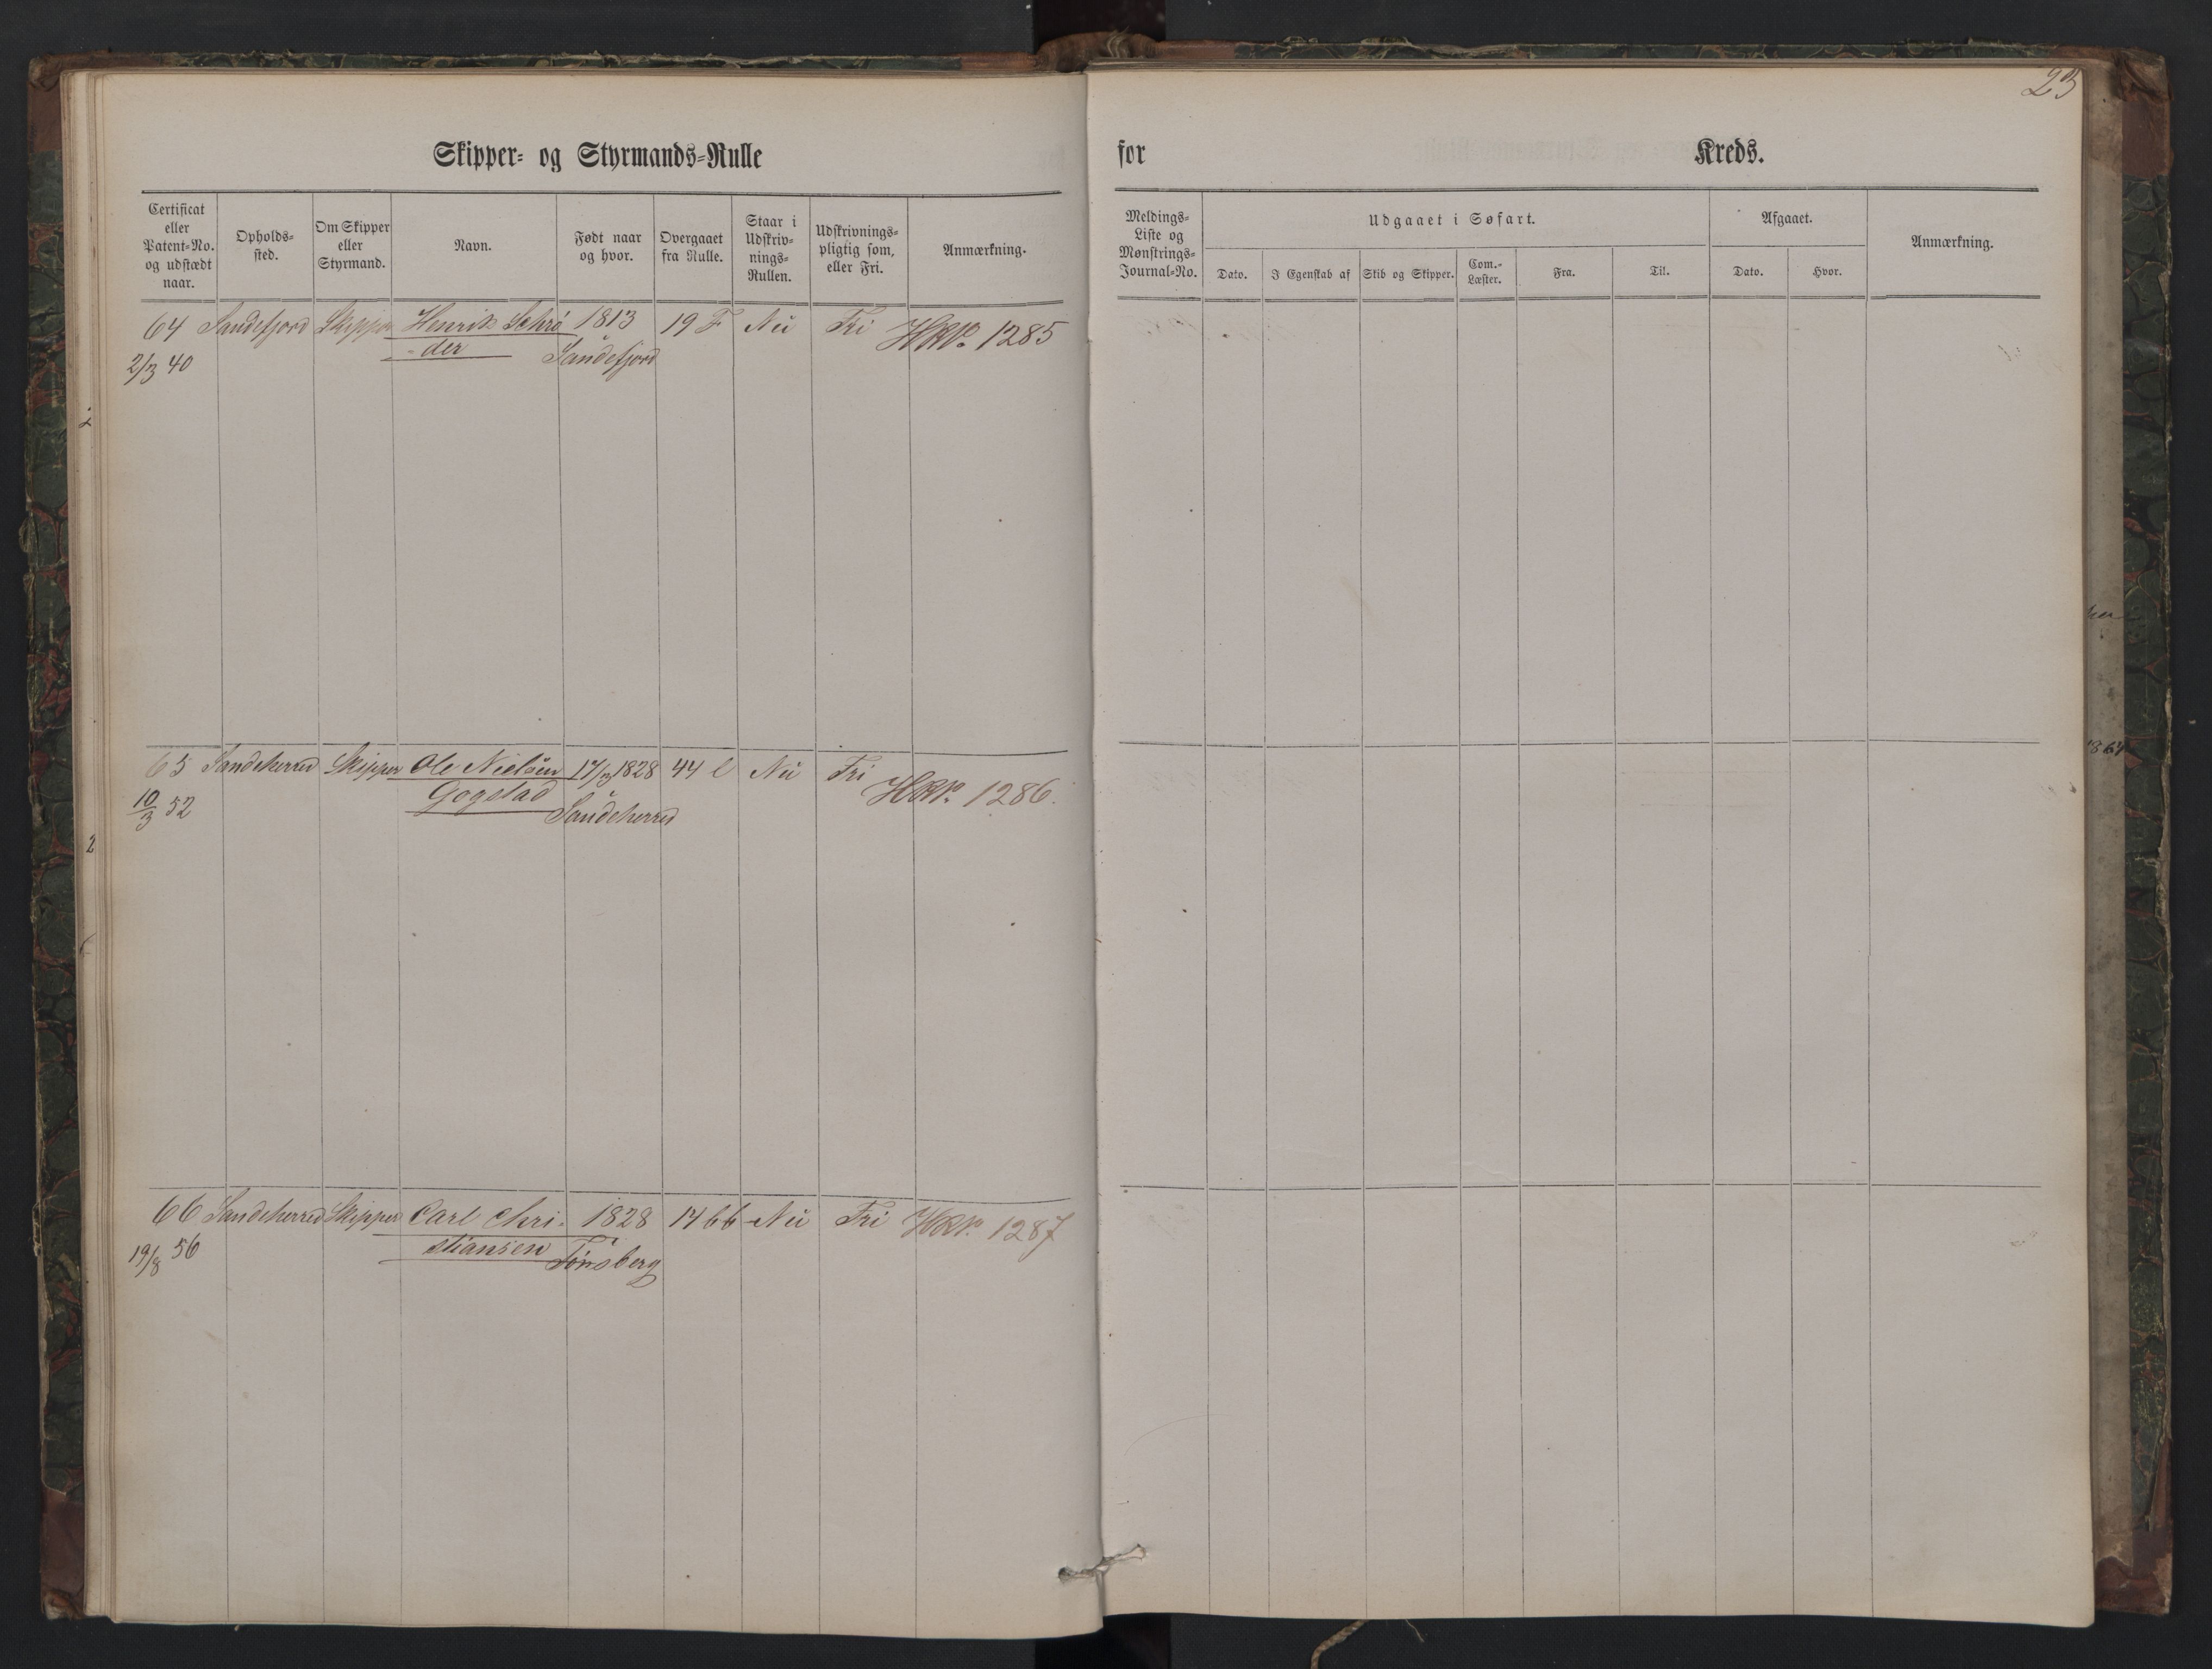 23
Skipper- og Styrmands-Rulle
for Kreds.
Certificat eller Patent-No. og udstædt naar.
Opholds-sted.
Om Skipper eller Styrmand.
Navn.
Født naar og hvor.
Overgaaet fra Rulle.
Staar i Udskriv-nings-Rullen.
Udskrivnings-pligtig som, eller Fri.
Anmærkning.
Meldings-Liste og Mønstrings-Journal-No.
Udgaaet i Søfart.
Dato.
I Egenskab af
Skib og Skipper.
Com.-Læster.
Fra.
Til.
Afgaaet.
Dato.
Hvor.
Anmærkning.
64 Sandefjord Skipper Henrik Schrö 1813 19 F Nei Fri 1285
2/3 40 -der Sandefjord
65 Sandeherred Skipper Ole Nielsen 17/3 1828 44 l Nei Fri 1286.
10/3 52 Gogstad Sandeherred
66 Sandeherred Skipper Carl Chri- 1828 1466 Nei Fri 1287
19/8 56 stiansen Tönsberg